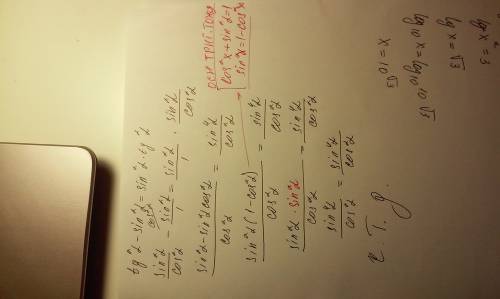 tg²α - sin²α = sin²α · tg²α
sin²α/cos²α - sin²α/1 = sin²α/1 · sin²α/cos²α
(sin²α - sin²α cos²α)/cos²α = sin⁴α/cos²α
sin²α(1-cos²α)/cos²α = sin⁴α/cos²α
sin²α · sin²α/cos²α = sin⁴α/cos²α
sin⁴α/cos²α = sin⁴α/cos²α
ч. т. д.
осн. триг. тожд
cos²x + sin²x = 1
sin²x = 1 - cos²x
lg²x = 3
lg x = √3
lg 10 x = lg 10 10^√3
x = 10^√3